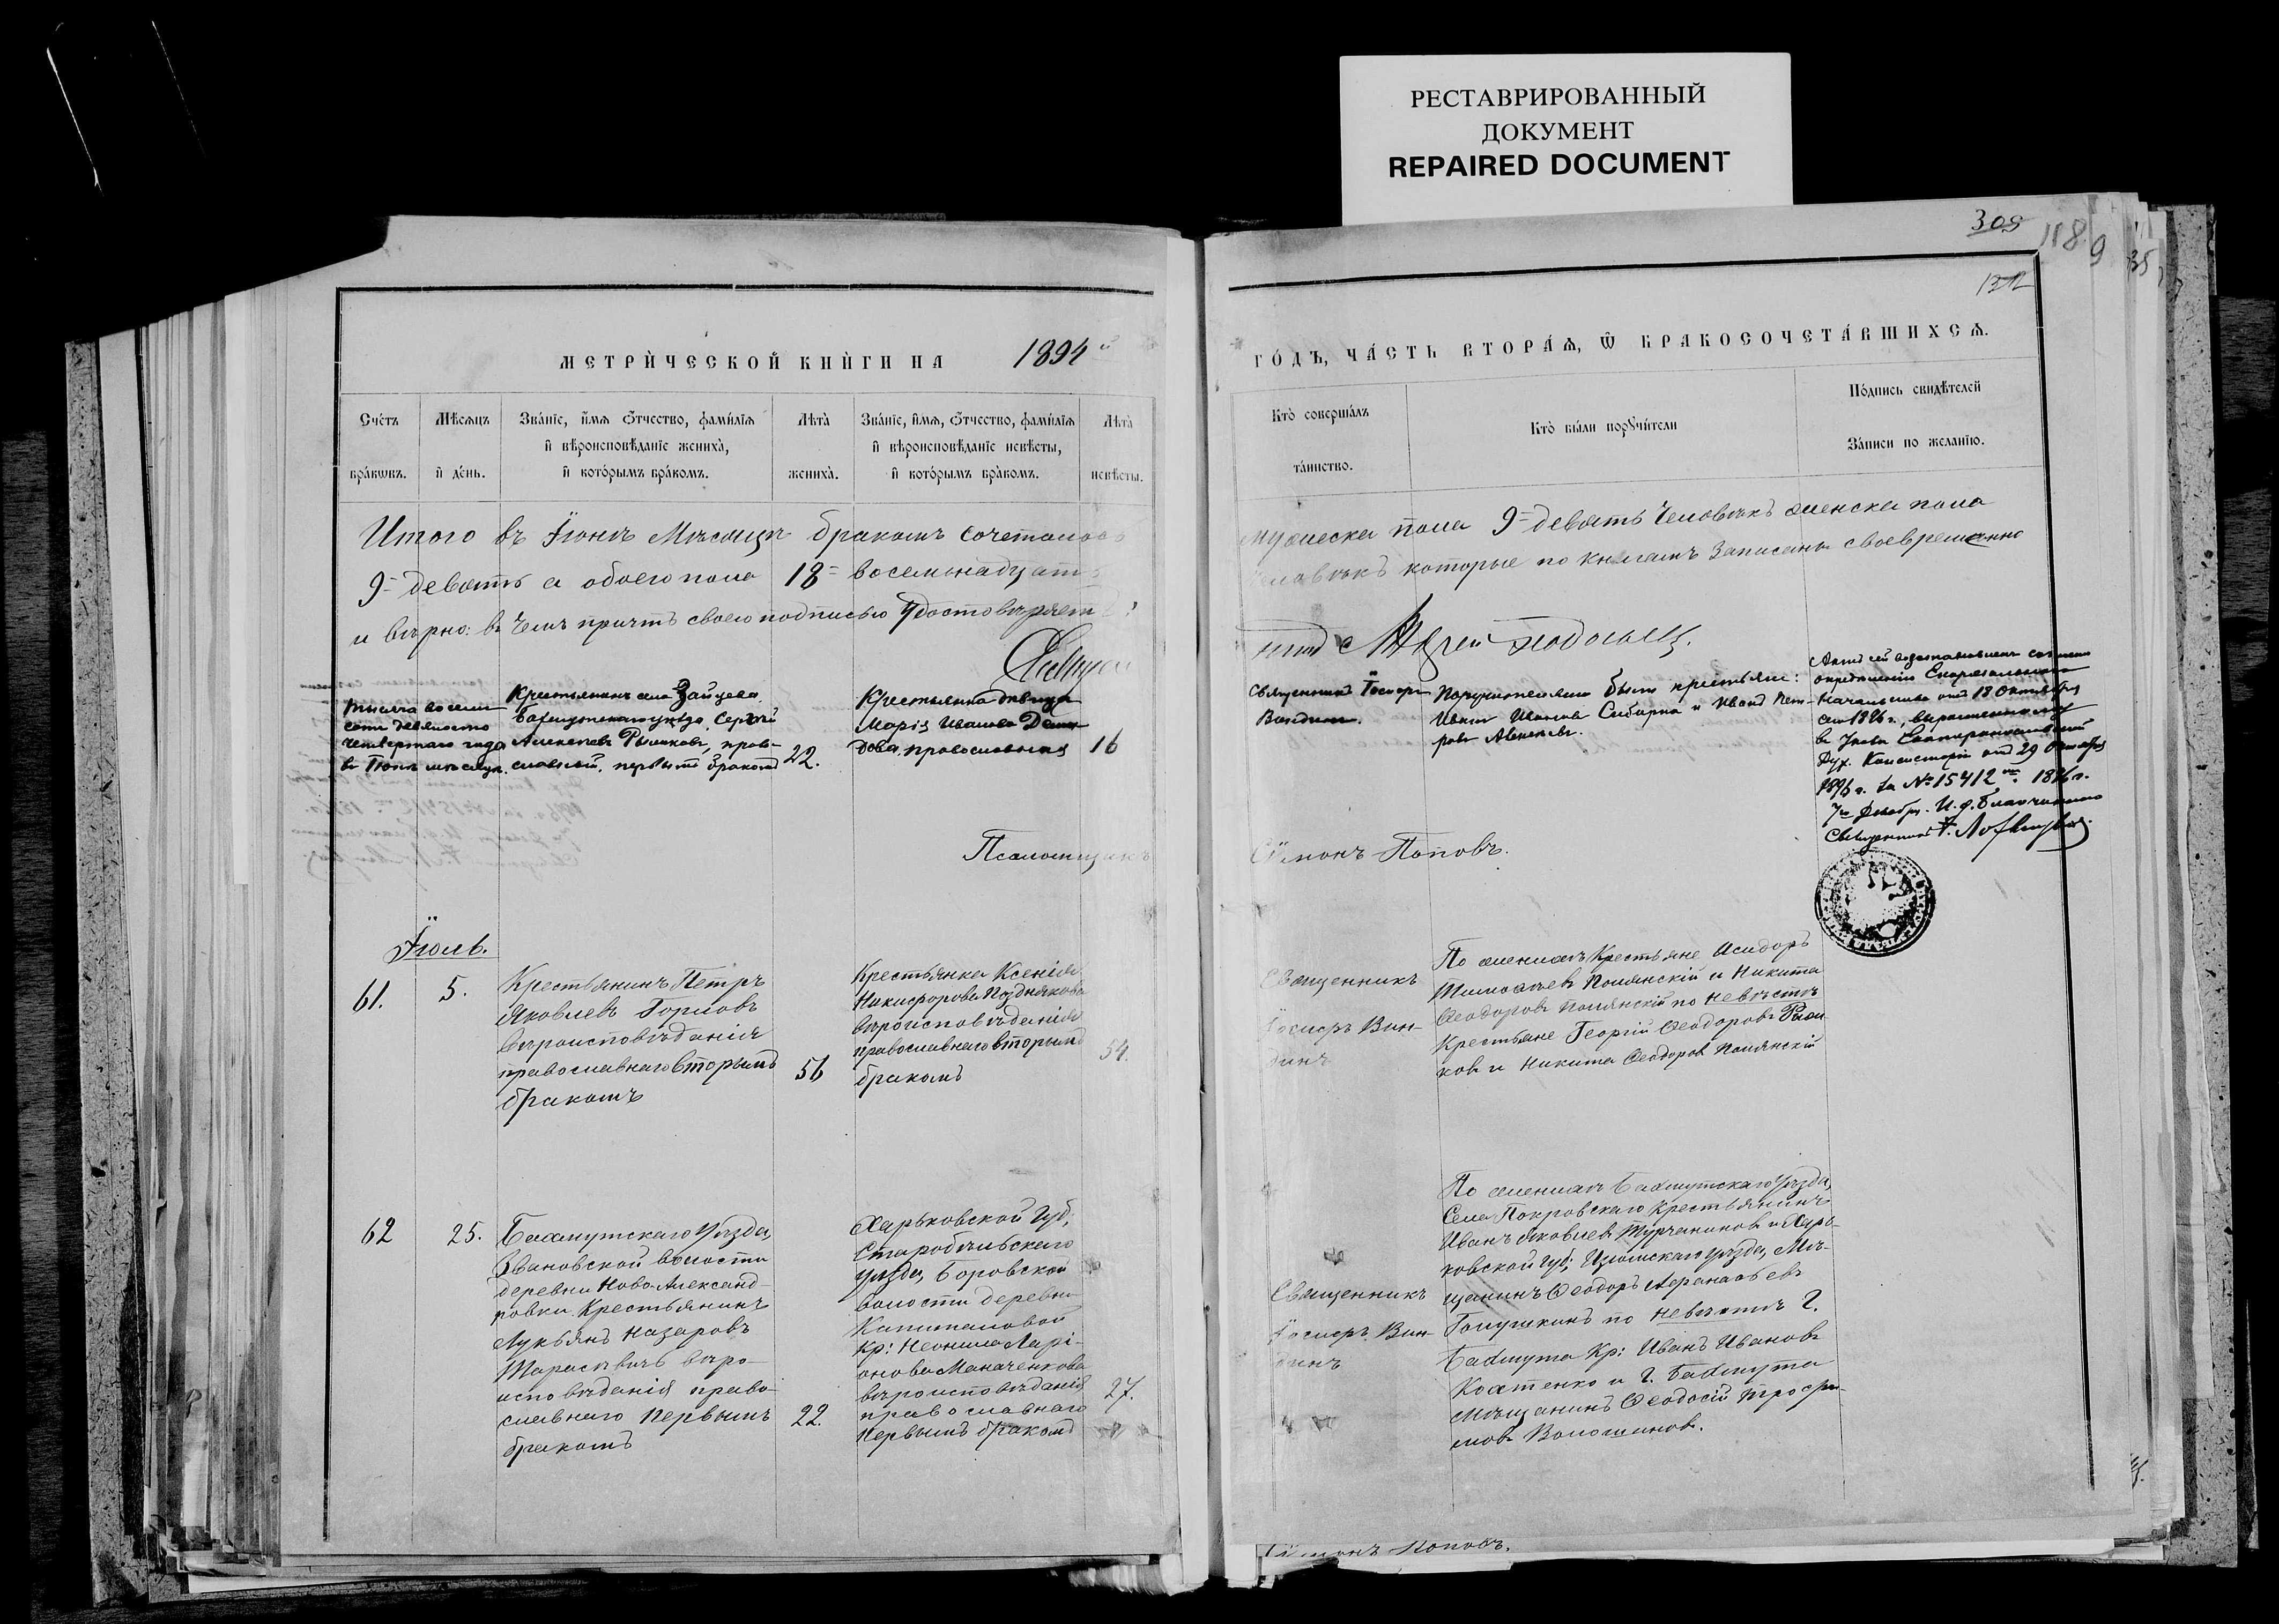 РЕСТАВРИРОВАННЫЙ
ДОКУМЕНТ
REPAIRED DOCUMENT
309
118
9
35
132
МЕТРИ́ЧЕСКОЙ КНИ́ГИ НА 1894
ГО́ДЪ, ЧА́СТЬ ВТОРА́Ѧ, Ѿ БРАКОСОЧЕТА́ВШИХСѦ.
Сче́тъ
бра́кѡвъ.
Мѣ́сѧцъ
и҆ де́нь.
Зва́нїе, и҆́мѧ ѻ҆́тчество, фами́лїѧ
и҆ вѣроисповѣ́данїе жениха̀,
и҆ кото́рымъ бра́комъ.
Лѣта̀
жениха̀.
Зва́нїе, и҆́мѧ, ѻ҆́тчество, фами́лїѧ
и҆ вѣроисповѣ́данїе невѣ́сты,
и҆ кото́рымъ бра́комъ.
Лѣта̀
невѣ́сты.
Кто̀ соверша́лъ
та́инство.
Кто̀ бы́ли порꙋчи́тели
По́дпись свидѣ́телей
За́писи по жела́нїю.
Итого въ Іюнѣ Мѣсяцѣ бракомъ сочеталось
мужеска пола 9 девять человѣкъ женска пола
9 девять а обоего пола 18 восемьнадцать
человѣкъ которые по книгамъ записаны своевременно
и вѣрно: въ чемъ причтъ своею подписью удостовѣряетъ
Тысяча восемь
сотъ девяносто
четвертаго года
въ Іюнѣ мѣсяцѣ.
Крестьянинъ села Зайцева
Бахмутскаго уѣзда, Сергѣй
Алексѣевъ Рыжковъ, право-
славный, первымъ бракомъ
22.
Крестьянка дѣвица
Марія Иванова
православная
16
Священникъ Іосифъ
Виндинъ.
Поручителями были крестьяне:
Иванъ Ивановъ и Иванъ Пет-
ровъ Алексѣевъ.
Актъ сей возстановленъ согласно
опредѣленію Епархіальнаго
Начальства отъ 18 Октября
сего 1896 г., выраженному
въ Указѣ Екатеринославской
Дух. Консисторіи отъ 29 Октября
1896 г. за № 15412. 1896 г.
7 Декабря. И. д. Благочиннаго
Священникъ
Псаломщикъ Сѵмонъ Поповъ.
Іюль.
61.
5.
Крестьянинъ Петръ
Яковлевъ Горловъ
вѣроисповѣданія
православнаго вторымъ
бракомъ
56
Крестьянка Ксенія
Никифорова Позднякова
вѣроисповѣданія
православнаго вторымъ
бракомъ
54.
Священникъ
Іосифъ Вин-
динъ
По женихѣ Крестьяне Исидоръ
Тимофѣевъ Полянскій и Никита
Ѳеодоровъ Полянскій по невѣстѣ
Крестьяне Георгій Ѳеодоровъ Рыж-
ковъ и Никита Ѳеодоровъ Полянскій
62
25.
Бахмутскаго уѣзда,
Звановской волости
деревни Ново Александ-
ровки Крестьянинъ
Лукьянъ Назаровъ
Тарасевичъ вѣро-
исповѣданія право-
славнаго первымъ
бракомъ
22.
Харьковской Губ,
Старобѣльскаго
уѣзда, Боровской
волости деревни
Капитановой
кр: Неонила Ларі-
онова Маначенкова
вѣроисповѣданія
православнаго
первымъ бракомъ
27.
Священникъ
Іосифъ Вин-
динъ
По женихѣ Бахмутскаго уѣзда,
Села Покровскаго Крестьянинъ
Иванъ Яковлевъ Турчаниновъ и Харь-
ковской Губ; Изюмскаго уѣзда, Мѣ-
щанинъ Ѳеодоръ Аѳанасьевъ
Голушкинъ по невѣстѣ Г.
Бахмута Кр: Иванъ Ивановъ
Костенко и Г. Бахмута
Мѣщанинъ Ѳеодосій Трофи-
мовъ Волошиновъ.
Сѵмонъ Поповъ.